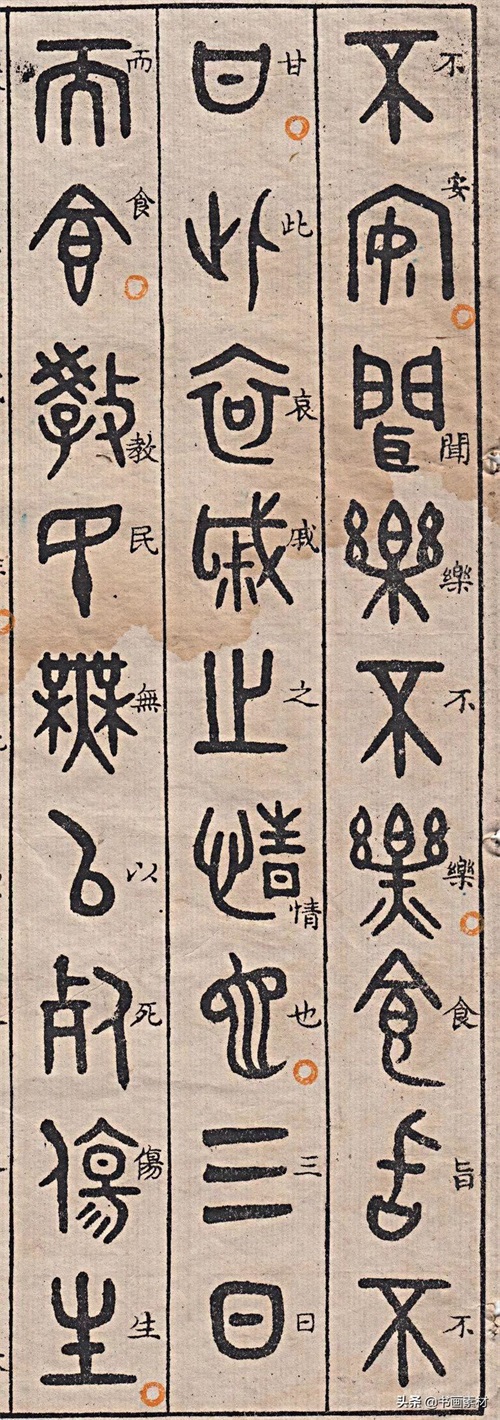 不安聞樂不樂食旨不
甘此哀戚之情也三日
而食教民無以死傷生
头条 @书画素材